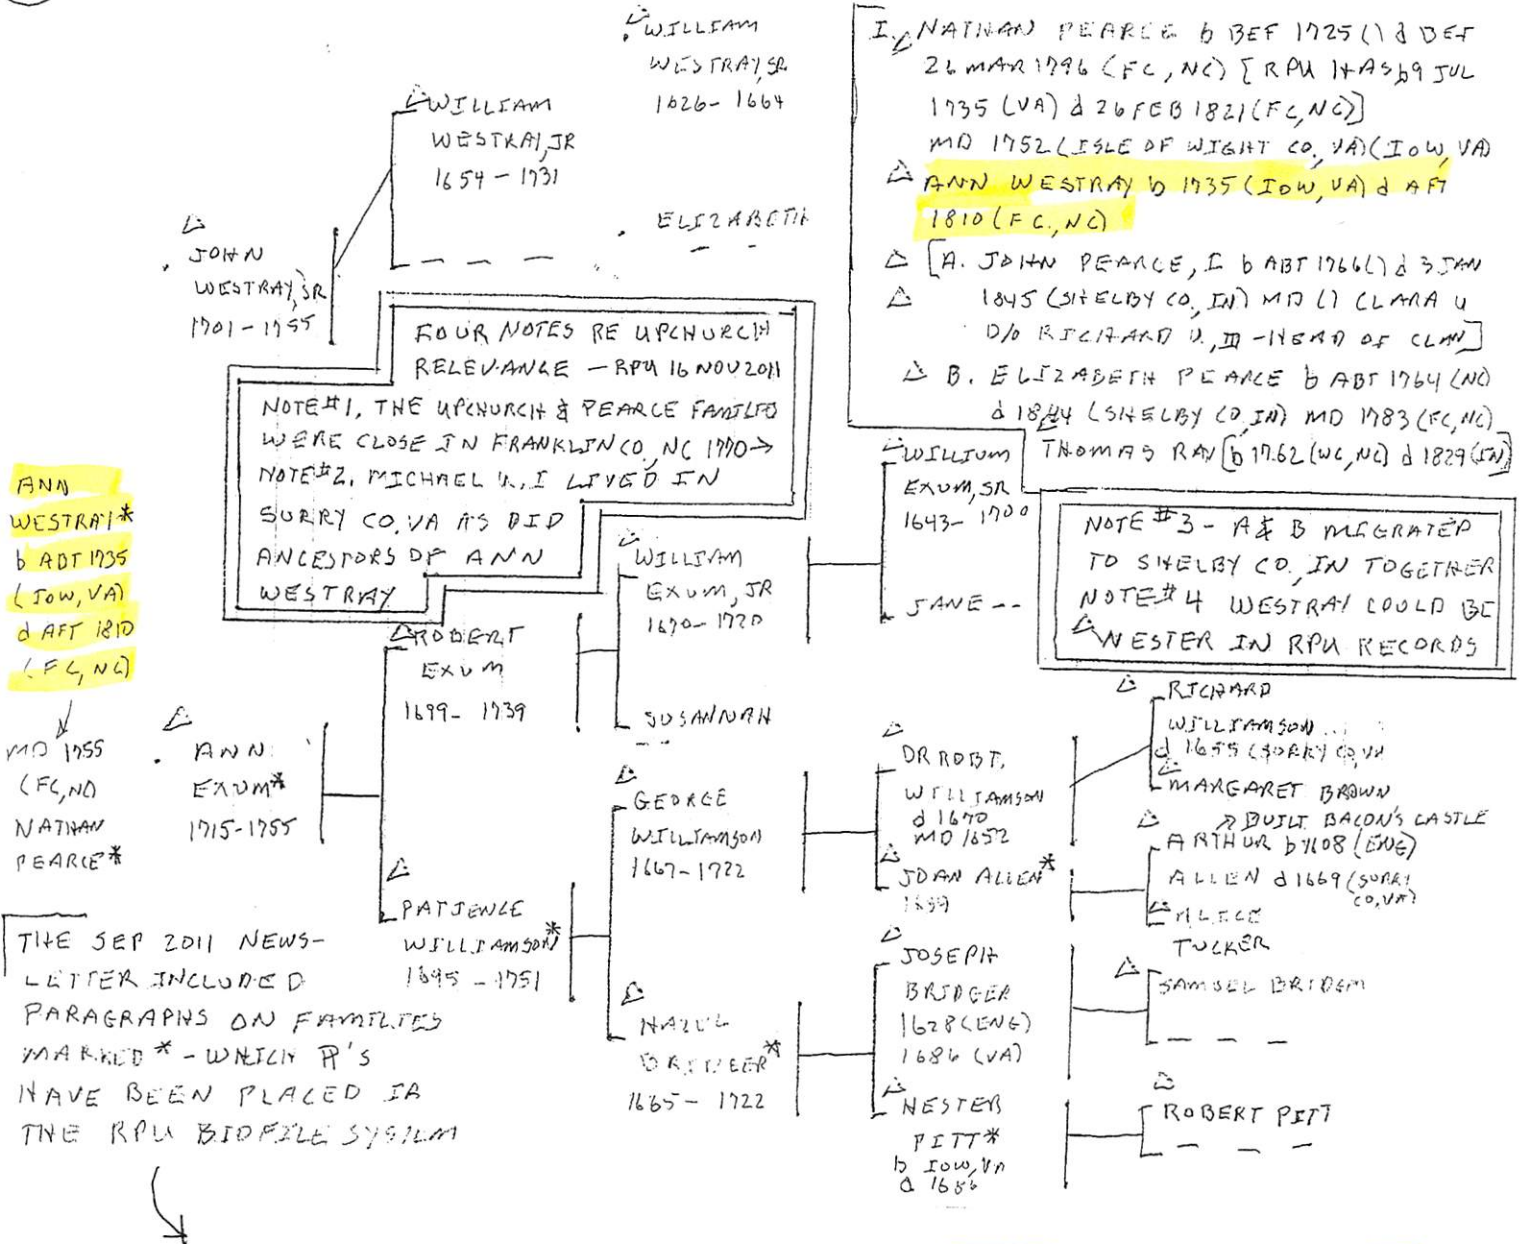 WILLIAM
WESTRAY, SR
1626-1664
WILLIAM
WESTRAY, JR
1654-1731
ELIZABETH
JOHN
WESTRAY, SR
1701-1755
I. NATHAN PEARCE b BEF 1725 () d BEF
26 MAR 1796 (FC, NC) [RPU HAS b 9 JUL
1735 (VA) d 26 FEB 1821 (FC, NC)]
MD 1752 (ISLE OF WIGHT CO, VA) (IOW, VA)
ANN WESTRAY b 1735 (IOW, VA) d AFT
1810 (FC, NC)
[A. JOHN PEARCE, I b ABT 1766 () d 3 JAN
1845 (SHELBY CO, IN) MD () CLARA U
D/O RICHARD U., III - HEAD OF CLAN]
B. ELIZABETH PEARCE b ABT 1764 (NC)
d 1844 (SHELBY CO, IN) MD 1783 (FC, NC)
THOMAS RAY [b 1762 (WC, NC) d 1829 (IN)]
FOUR NOTES RE UPCHURCH
RELEVANCE - RPU 16 NOV 2011
NOTE #1. THE UPCHURCH & PEARCE
WERE CLOSE IN FRANKLIN CO, NC 1770→
NOTE #2. MICHAEL U., I LIVED IN
SURRY CO, VA AS DID
ANCESTORS OF ANN
WESTRAY
NOTE #3 - A & B MIGRATED
TO SHELBY CO., IN TOGETHER
NOTE #4 WESTRAY COULD BE
WESTER IN RPU RECORDS
ANN
WESTRAY*
b ABT 1735
(IOW, VA)
d AFT 1810
(FC, NC)
MD 1755
(FC, NC)
NATHAN
PEARCE*
ANN
EXUM*
1715-1755
ROBERT
EXUM
1699-1739
PATIENCE
WILLIAMSON*
1695-1751
WILLIAM
EXUM, JR
1670-1720
SUSANNAH
WILLIUM
EXUM, SR
1643-1700
JANE --
GEORGE
WILLIAMSON
1667-1722
1665-1722
DR ROBT.
WILLIAMSON
d 1670
MD 1652
JOAN ALLEN*
RICHARD
WILLIAMSON
d 1655 (SURRY CO, VA
MARGARET BROWN
↗ BUILT BACON'S CASTLE
ARTHUR b 1608 (ENG)
ALLEN d 1669 (SURRY
CO, VA)
ALICE
TUCKER
JOSEPH
BRIDGER
1628 (ENG)
1686 (VA)
HESTER
PITT*
b IOW, VA
SAMUEL
ROBERT PITT
THE SEP 2011 NEWS-
LETTER INCLUDED
PARAGRAPHS ON FAMILIES
MARKED * - WHICH ¶'S
HAVE BEEN PLACED IN
THE RPU BIOFILE SYSTEM